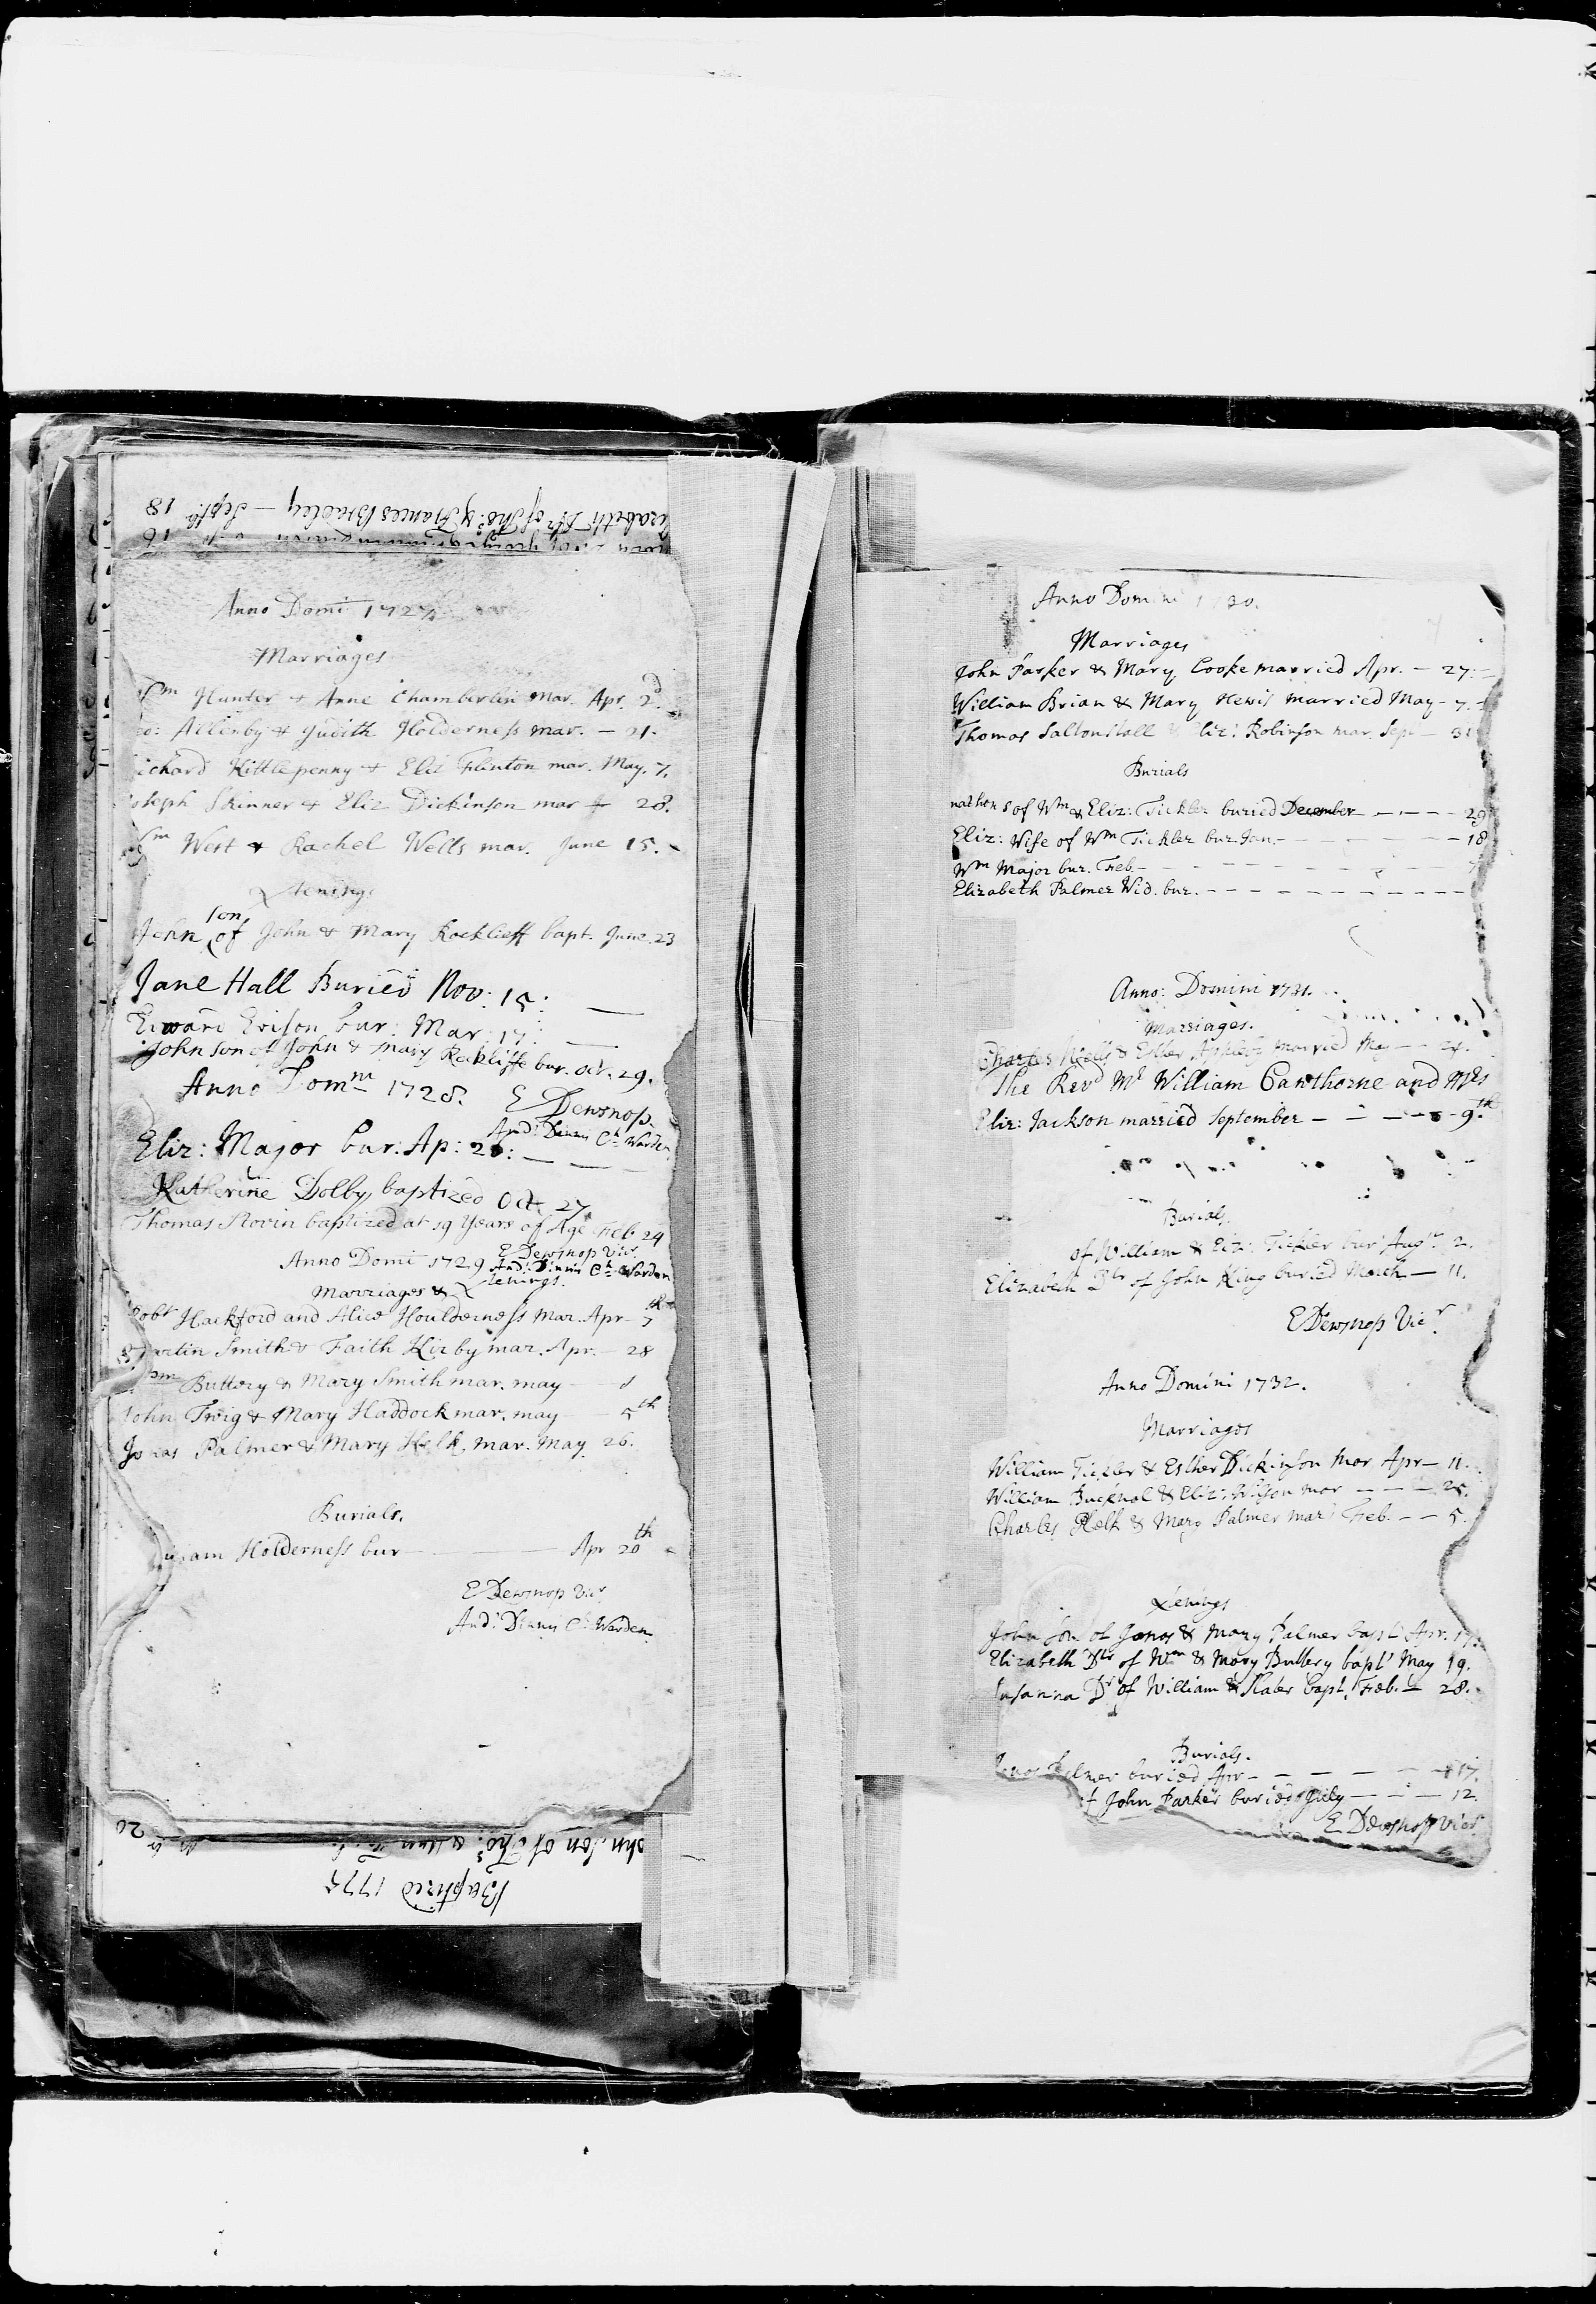 Elizabeth Dtr of Tho: & Frances Bradley — Septbr 18
16
Anno Domi 1727
Marriages
Wm Hunter & Anne Chamberlin mar. Apr. 2d.
Allenby & Judith Holderness mar. — 21.
ichard Kittlepenny & Eliz Flinton mar. May. 7.
oseph Skinner & Eliz Dickinson mar 28.
Wm West & Rachel Wells mar. June 15.
Xtenings
John son of John & Mary Rocklieff bapt. June. 23
Jane Hall Buried Nov: 15: —
Edward Evison bur: Mar: 17: —
John son of John & Mary Reckliffe bur. Oct. 29.
Anno Domni 1728.
E Dewsnop
And: Dinnis Ch Warden
Eliz: Major bur: Ap: 20: — — —
Katherine Dolby baptized Oct. 27
Thomas Stovin baptized at 19 Years of Age Feb 24
E Dewsnop Vicr
Anno Domi 1729 And: Dinnis Ch Warden
Marriages & Xtenings.
Robt Hackford and Alice Houlderness Mar. Apr — 7th
Martin Smith & Faith Kirby mar. Apr. — 28
Wm Buttery & Mary Smith mar. may
John Twig & Mary Haddock mar. may — 5th
Jonas Palmer & Mary Helk. mar. May 26.
Burials.
iliam Holderness bur — Apr 20th
E Dewsnop Vicr
And: Dinnis Ch Warden
ohn Son of Tho: & 20
Baptized 1775
Anno Domini 1730.
Marriages
John Parker & Mary Cooke married Apr. — 27. —
William Brian & Mary Hewis married May — 7. —
Thomas Saltonstall & Eliz: Robinson mar. Sep. — 31
Burials
nathan s of Wm & Eliz: Tickler buried December — — — — 29
Eliz: Wife of Wm Tickler bur. Jan. — — — — — 18
Wm Major bur. Feb. — — — — — —
Elizabeth Palmer Wid. bur. — — — — — — — — —
Anno: Domini 1731.
Marriages.
Charles Wells & Esther Appleby married May — 24.
The Revd Mr William Cawthorne and Mrs
Eliz: Jackson married September — — — — — 9th
Burials.
of William & Eliz: Tickler burd Augst 2.
Elizabeth Dtr of John King buried March — 11.
E Dewsnop Vicr
Anno Domini 1732.
Marriages
William Tickler & Esther Dickinson mar Apr — 11.
William Bucknal & Eliz: Wilson mar — — — 25.
Charles Helk & Mary Palmer mard Feb. — — 5.
Xtenings
John Son of Jonas & Mary Palmer bapt Apr. 17.
Elizabeth Dtr of Wm & Mary Buttery bapt May 19.
Susanna Dr of William & Slater bapt. Feb. — 28.
Burials.
Jonas Palmer buried Apr — — — — — 17.
of John Parker buried July — — — 12.
E Dewsnop Vicr